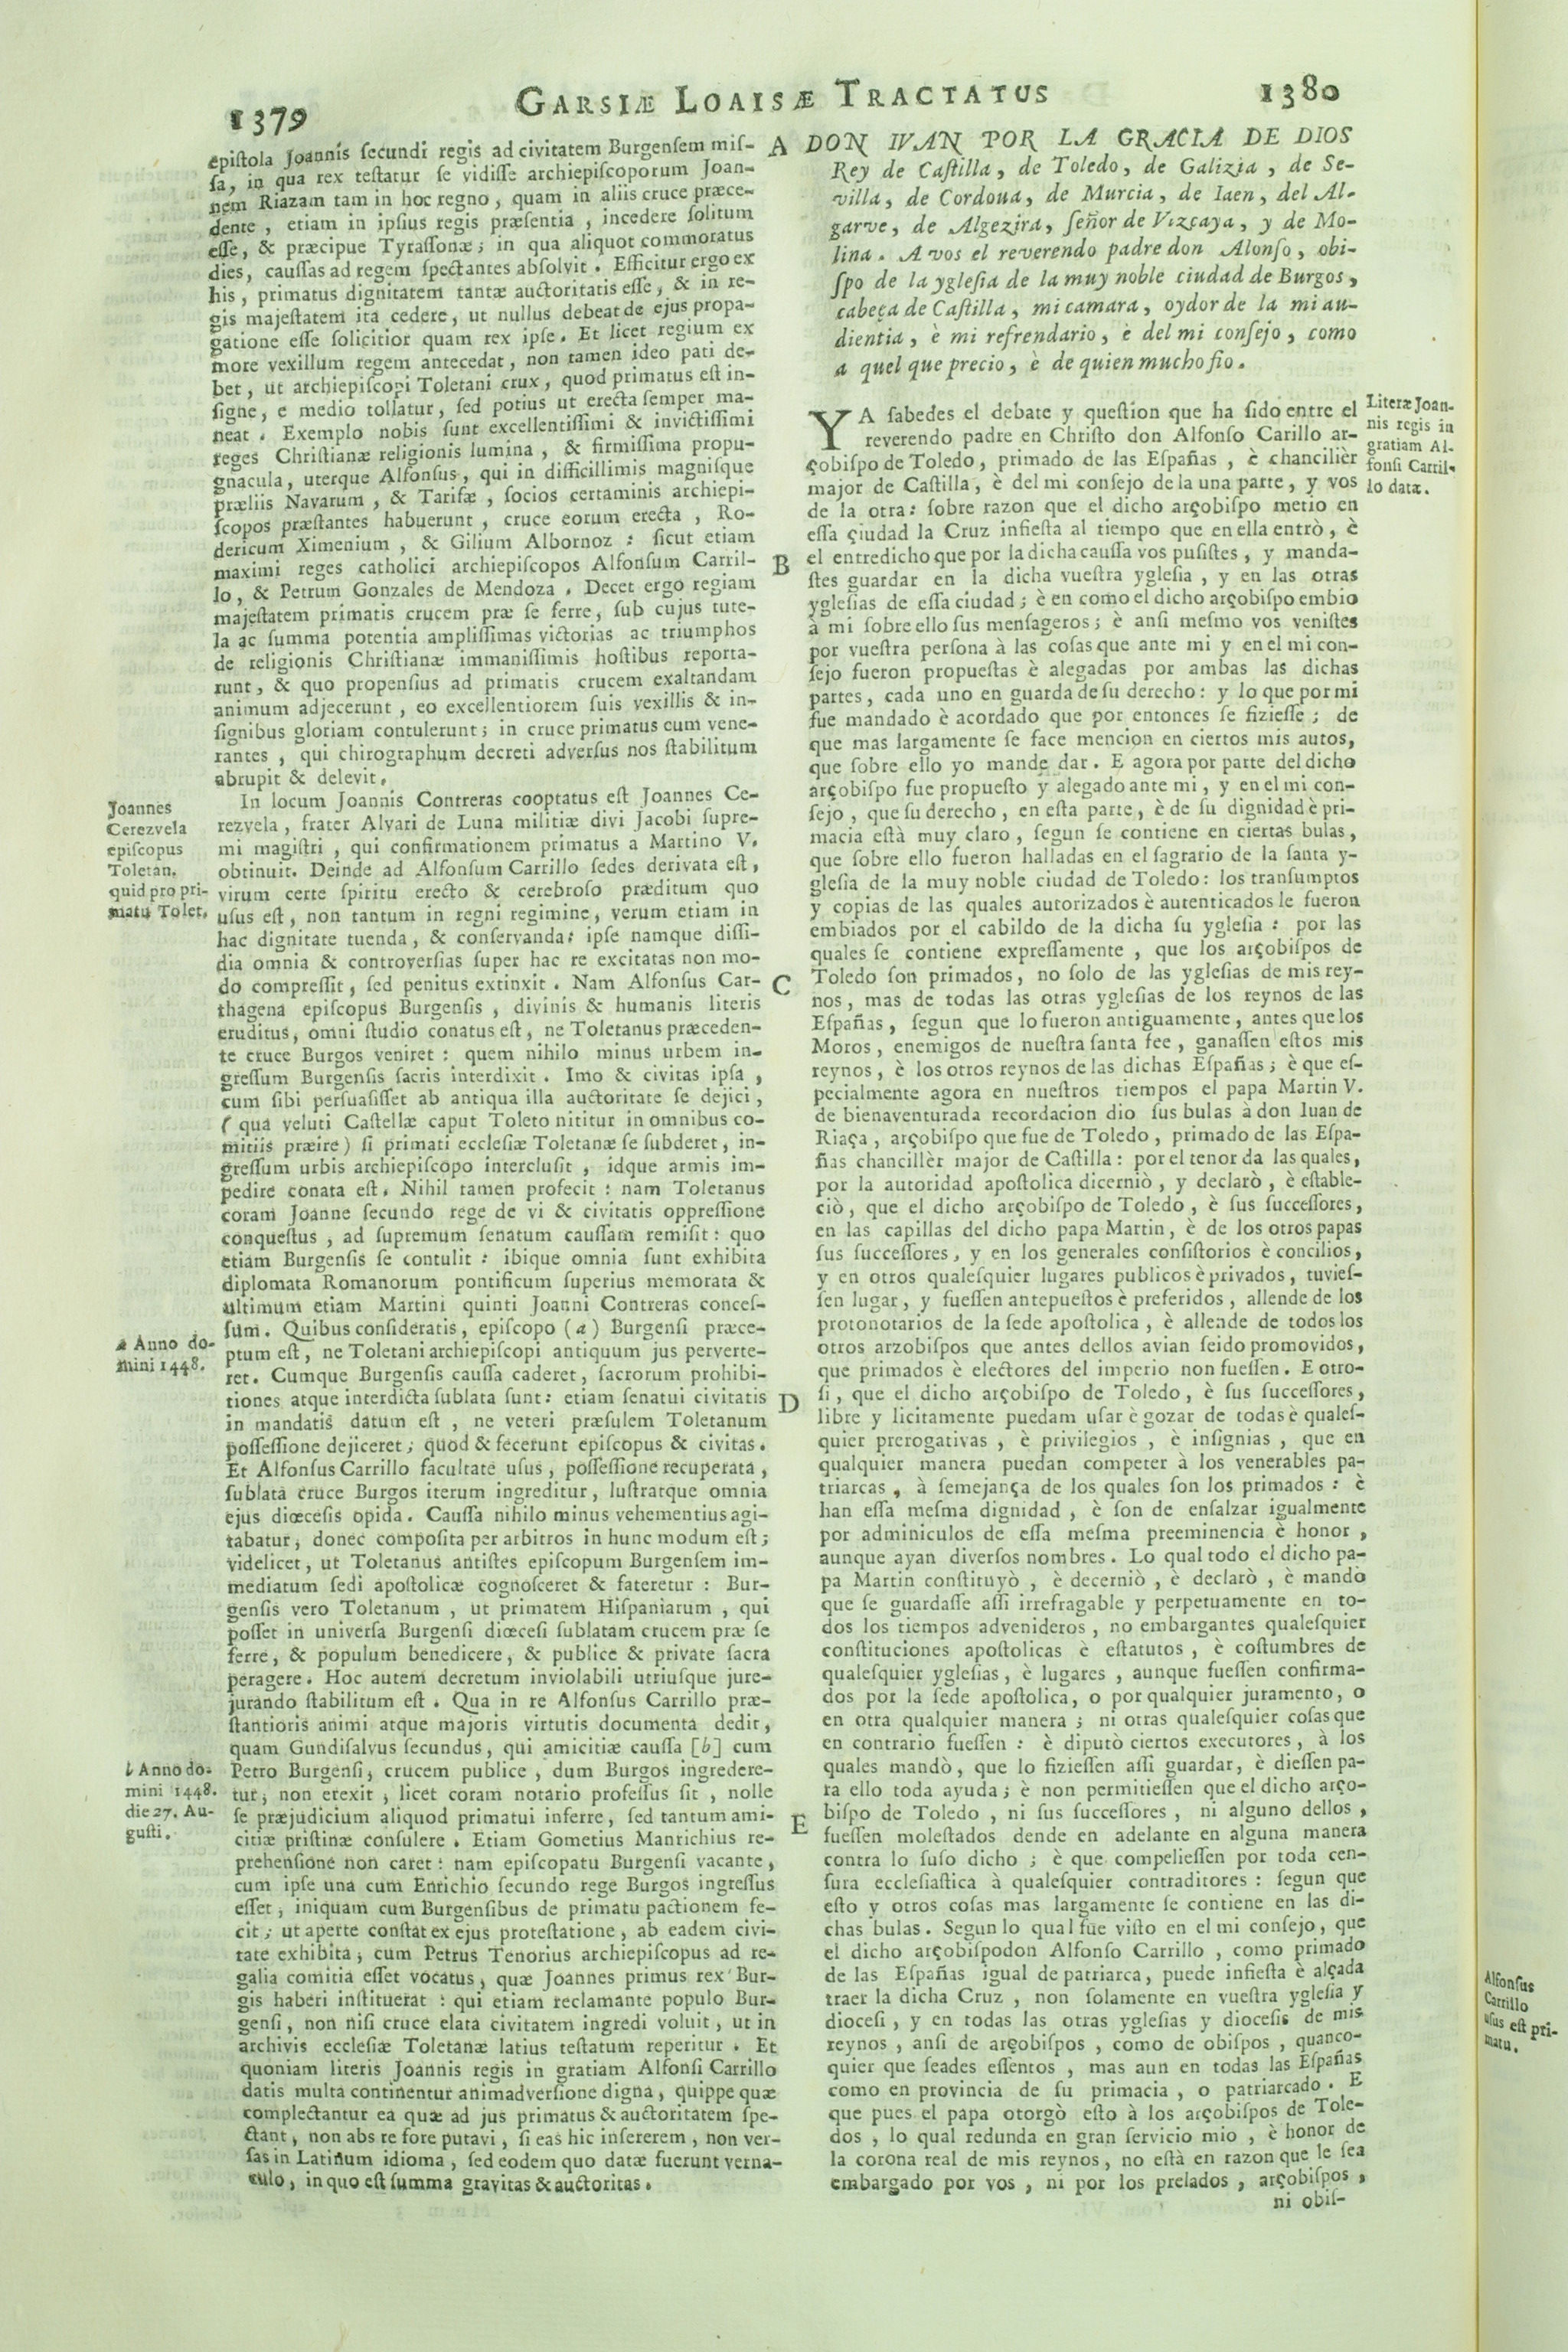 1379
GARSIÆ LOAISÆ TRACTATUS
1380
epiſtola Joannis ſecundi regis ad civitatem Burgenſem miſ-
ſa, in qua rex teſtatur ſe vidiſſe archiepiſcoporum Joan-
nem Riazam tam in hoc regno, quam in aliis cruce præce-
dente, etiam in ipſius regis præſentia, incedere ſolitum
eſſe, & præcipue Tyraſſonæ; in qua aliquot commoratus
dies, cauſſas ad regem ſpectantes abſolvit. Efficitur ergo ex
his, primatus dignitatem tantæ auctoritatis eſſe, & in re-
gis majeſtatem ita cedere, ut nullus debeat de ejus propa-
gatione eſſe ſolicitior quam rex ipſe. Et licet regium ex
more vexillum regem antecedat, non tamen ideo pati de-
bet, ut archiepiſcopi Toletani crux, quod primatus eſt in-
ſigne, e medio tollatur, ſed potius ut erecta ſemper ma-
neat. Exemplo nobis ſunt excellentiſſimi & invictiſſimi
reges Chriſtianæ religionis lumina, & firmiſſima propu-
gnacula, uterque Alfonſus, qui in difficillimis magniſque
præliis Navarum, & Tarifæ, ſocios certaminis archiepi-
ſcopos præſtantes habuerunt, cruce eorum erecta, Ro-
dericum Ximenium, & Gilium Albornoz: ſicut etiam
maximi reges catholici archiepiſcopos Alfonſum Carril-
lo, & Petrum Gonzales de Mendoza. Decet ergo regiam
majeſtatem primatis crucem præ ſe ferre, ſub cujus tute-
la ac ſumma potentia ampliſſimas victorias ac triumphos
de religionis Chriſtianæ immaniſſimis hoſtibus reporta-
runt, & quo propenſius ad primatis crucem exaltandam
animum adjecerunt, eo excellentiorem ſuis vexillis & in-
ſignibus gloriam contulerunt; in cruce primatus eum vene-
rantes, qui chirographum decreti adverſus nos ſtabilitum
abrupit & delevit.
Joannes
Cerezvela
epiſcopus
Toletan.
quid pro pri-
matu Tolet.
In locum Joannis Contreras cooptatus eſt Joannes Ce-
rezvela, frater Alvari de Luna militiæ divi Jacobi ſupre-
mi magiſtri, qui confirmationem primatus a Martino V.
obtinuit. Deinde ad Alfonſum Carrillo ſedes derivata eſt,
virum certe ſpiritu erecto & cerebroſo præditum quo
uſus eſt, non tantum in regni regimine, verum etiam in
hac dignitate tuenda, & conſervanda: ipſe namque diſſi-
dia omnia & controverſias ſuper hac re excitatas non mo-
do compreſſit, ſed penitus extinxit. Nam Alfonſus Car-
thagena epiſcopus Burgenſis, divinis & humanis literis
eruditus, omni ſtudio conatus eſt, ne Toletanus præceden-
te cruce Burgos veniret: quem nihilo minus urbem in-
greſſum Burgenſis ſacris interdixit. Imo & civitas ipſa,
cum ſibi perſuaſiſſet ab antiqua illa auctoritate ſe dejici,
(qua veluti Caſtellæ caput Toleto nititur in omnibus co-
mitiis præire) ſi primati eccleſiæ Toletanæ ſe ſubderet, in-
greſſum urbis archiepiſcopo intercluſit, idque armis im-
pedire conata eſt. Nihil tamen profecit: nam Toletanus
coram Joanne ſecundo rege de vi & civitatis oppreſſione
conqueſtus, ad ſupremum ſenatum cauſſam remiſit: quo
etiam Burgenſis ſe contulit: ibique omnia ſunt exhibita
diplomata Romanorum pontificum ſuperius memorata &
ultimum etiam Martini quinti Joanni Contreras conceſ-
ſum. Quibus conſideratis, epiſcopo (a) Burgenſi præce-
ptum eſt, ne Toletani archiepiſcopi antiquum jus perverte-
ret. Cumque Burgenſis cauſſa caderet, ſacrorum prohibi-
tiones atque interdicta ſublata ſunt: etiam ſenatui civitatis
in mandatis datum eſt, ne veteri præſulem Toletanum
poſſeſſione dejiceret; quod & fecerunt epiſcopus & civitas.
Et Alfonſus Carrillo facultate uſus, poſſeſſione recuperata,
ſublata cruce Burgos iterum ingreditur, luſtratque omnia
ejus diœceſis opida. Cauſſa nihilo minus vehementius agi-
tabatur, donec compoſita per arbitros in hunc modum eſt;
videlicet, ut Toletanus antiſtes epiſcopum Burgenſem im-
mediatum ſedi apoſtolicæ cognoſceret & fateretur: Bur-
genſis vero Toletanum, ut primatem Hiſpaniarum, qui
poſſet in univerſa Burgenſi diœceſi ſublatam crucem præ ſe
ferre, & populum benedicere, & publice & private ſacra
peragere. Hoc autem decretum inviolabili utriuſque jure-
jurando ſtabilitum eſt. Qua in re Alfonſus Carrillo præ-
ſtantioris animi atque majoris virtutis documenta dedit,
quam Gundiſalvus ſecundus, qui amicitiæ cauſſa [b] cum
Petro Burgenſi, crucem publice, dum Burgos ingredere-
tur, non erexit, licet coram notario profeſſus ſit, nolle
ſe præjudicium aliquod primatui inferre, ſed tantum ami-
citiæ priſtinæ conſulere. Etiam Gometius Manrichius re-
prehenſione non caret: nam epiſcopatu Burgenſi vacante,
cum ipſe una cum Enrichio ſecundo rege Burgos ingreſſus
eſſet, iniquam cum Burgenſibus de primatu pactionem fe-
cit; ut aperte conſtat ex ejus proteſtatione, ab eadem civi-
tate exhibita, cum Petrus Tenorius archiepiſcopus ad re-
galia comitia eſſet vocatus, quæ Joannes primus rex Bur-
gis haberi inſtituerat: qui etiam reclamante populo Bur-
genſi, non niſi cruce elata civitatem ingredi voluit, ut in
archivis eccleſiæ Toletanæ latius teſtatum reperitur. Et
quoniam literis Joannis regis in gratiam Alfonſi Carrillo
datis multa continentur animadverſione digna, quippe quæ
complectantur ea quæ ad jus primatus & auctoritatem ſpe-
ctant, non abs re fore putavi, ſi eas hic inſererem, non ver-
ſas in Latinum idioma, ſed eodem quo datæ fuerunt verna-
culo, in quo eſt ſumma gravitas & auctoritas.
a Anno do-
mini 1448.
b Anno do-
mini 1448.
die 27. Au-
guſti.
A
B
C
D
E
DON IVAN POR LA GRACIA DE DIOS
Rey de Caſtilla, de Toledo, de Galizia, de Se-
villa, de Cordoua, de Murcia, de Iaen, del Al-
garve, de Algezira, ſeñor de Vizcaya, y de Mo-
lina. A vos el reverendo padre don Alonſo, obi-
ſpo de la ygleſia de la muy noble ciudad de Burgos,
cabeça de Caſtilla, mi camara, oydor de la mi au-
dientia, è mi refrendario, è del mi conſejo, como
a quel que precio, è de quien mucho fio.
Literæ Joan-
nis regis in
gratiam Al-
fonſi Carril-
lo datæ.
YA ſabedes el debate y queſtion que ha ſido entre el
reverendo padre en Chriſto don Alfonſo Carillo ar-
çobiſpo de Toledo, primado de las Eſpañas, è chancilièr
major de Caſtilla, è del mi conſejo de la una parte, y vos
de la otra: ſobre razon que el dicho arçobiſpo metio en
eſſa çiudad la Cruz infieſta al tiempo que en ella entrò, è
el entredicho que por la dicha cauſſa vos puſiſtes, y manda-
ſtes guardar en la dicha vueſtra ygleſia, y en las otras
ygleſias de eſſa ciudad; è en como el dicho arçobiſpo embio
à mi ſobre ello ſus menſageros; è anſi meſmo vos veniſtes
por vueſtra perſona à las coſas que ante mi y en el mi con-
ſejo fueron propueſtas è alegadas por ambas las dichas
partes, cada uno en guarda de ſu derecho: y lo que por mi
fue mandado è acordado que por entonces ſe fizieſſe; de
que mas largamente ſe face mencion en ciertos mis autos,
que ſobre ello yo mande dar. E agora por parte del dicho
arçobiſpo fue propueſto y alegado ante mi, y en el mi con-
ſejo, que ſu derecho, en eſta parte, è de ſu dignidad è pri-
macia eſtà muy claro, ſegun ſe contiene en ciertas bulas,
que ſobre ello fueron halladas en el ſagrario de la ſanta y-
gleſia de la muy noble ciudad de Toledo: los tranſumptos
y copias de las quales autorizados è autenticados le fueron
embiados por el cabildo de la dicha ſu ygleſia: por las
quales ſe contiene expreſſamente, que los arçobiſpos de
Toledo ſon primados, no ſolo de las ygleſias de mis rey-
nos, mas de todas las otras ygleſias de los reynos de las
Eſpañas, ſegun que lo fueron antiguamente, antes que los
Moros, enemigos de nueſtra ſanta fee, ganaſſen eſtos mis
reynos, è los otros reynos de las dichas Eſpañas; è que eſ-
pecialmente agora en nueſtros tiempos el papa Martin V.
de bienaventurada recordacion dio ſus bulas à don Iuan de
Riaça, arçobiſpo que fue de Toledo, primado de las Eſpa-
ñas chancillèr major de Caſtilla: por el tenor da las quales,
por la autoridad apoſtolica dicerniò, y declarò, è eſtable-
ciò, que el dicho arçobiſpo de Toledo, è ſus ſucceſſores,
en las capillas del dicho papa Martin, è de los otros papas
ſus ſucceſſores, y en los generales conſiſtorios è concilios,
y en otros qualeſquier lugares publicos è privados, tuvieſ-
ſen lugar, y fueſſen antepueſtos è preferidos, allende de los
protonotarios de la ſede apoſtolica, è allende de todos los
otros arzobiſpos que antes dellos avian ſeido promovidos,
que primados è electores del imperio non fueſſen. E otro-
ſi, que el dicho arçobiſpo de Toledo, è ſus ſucceſſores,
libre y licitamente puedam uſar è gozar de todas è qualeſ-
quier prerogativas, è privilegios, è inſignias, que en
qualquier manera puedan competer à los venerables pa-
triarcas, à ſemejança de los quales ſon los primados: è
han eſſa meſma dignidad, è ſon de enſalzar igualmente
por adminiculos de eſſa meſma preeminencia è honor,
aunque ayan diverſos nombres. Lo qual todo el dicho pa-
pa Martin conſtituyò, è decerniò, è declarò, è mando
que ſe guardaſſe aſſi irrefragable y perpetuamente en to-
dos los tiempos advenideros, no embargantes qualeſquier
conſtituciones apoſtolicas è eſtatutos, è coſtumbres de
qualeſquier ygleſias, è lugares, aunque fueſſen confirma-
dos por la ſede apoſtolica, o por qualquier juramento, o
en otra qualquier manera; ni otras qualeſquier coſas que
en contrario fueſſen: è diputò ciertos executores, à los
quales mandò, que lo fizieſſen aſſi guardar, è dieſſen pa-
ra ello toda ayuda; è non permitieſſen que el dicho arço-
biſpo de Toledo, ni ſus ſucceſſores, ni alguno dellos,
fueſſen moleſtados dende en adelante en alguna manera
contra lo ſuſo dicho; è que compelieſſen por toda cen-
ſura eccleſiaſtica à qualeſquier contraditores: ſegun que
eſto y otros coſas mas largamente ſe contiene en las di-
chas bulas. Segun lo qual fue viſto en el mi conſejo, que
el dicho arçobiſpodon Alfonſo Carrillo, como primado
de las Eſpañas igual de patriarca, puede infieſta è alçada
traer la dicha Cruz, non ſolamente en vueſtra ygleſia y
dioceſi, y en todas las otras ygleſias y dioceſis de mis
reynos, anſi de arçobiſpos, como de obiſpos, quanco-
quier que ſeades eſſentos, mas aun en todas las Eſpañas
como en provincia de ſu primacia, o patriarcado. E
que pues el papa otorgò eſto à los arçobiſpos de Tole-
dos, lo qual redunda en gran ſervicio mio, è honor de
la corona real de mis reynos, no eſtà en razon que le ſea
embargado por vos, ni por los prelados, arçobiſpos,
ni obiſ-
Alfonſus
Carrillo
uſus eſt pri-
matu.